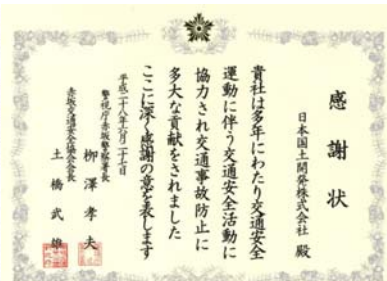 感謝状
日本国土開発株式会社 殿
貴社は多年にわたり交通安全
運動に伴う交通安全活動に
協力され交通事故防止に
多大な貢献をされました
ここに深く感謝の意を表します
平成二十八年六月二十七日
警視庁赤坂警察署長
柳澤孝夫
赤坂交通安全協会会長
土橋武雄